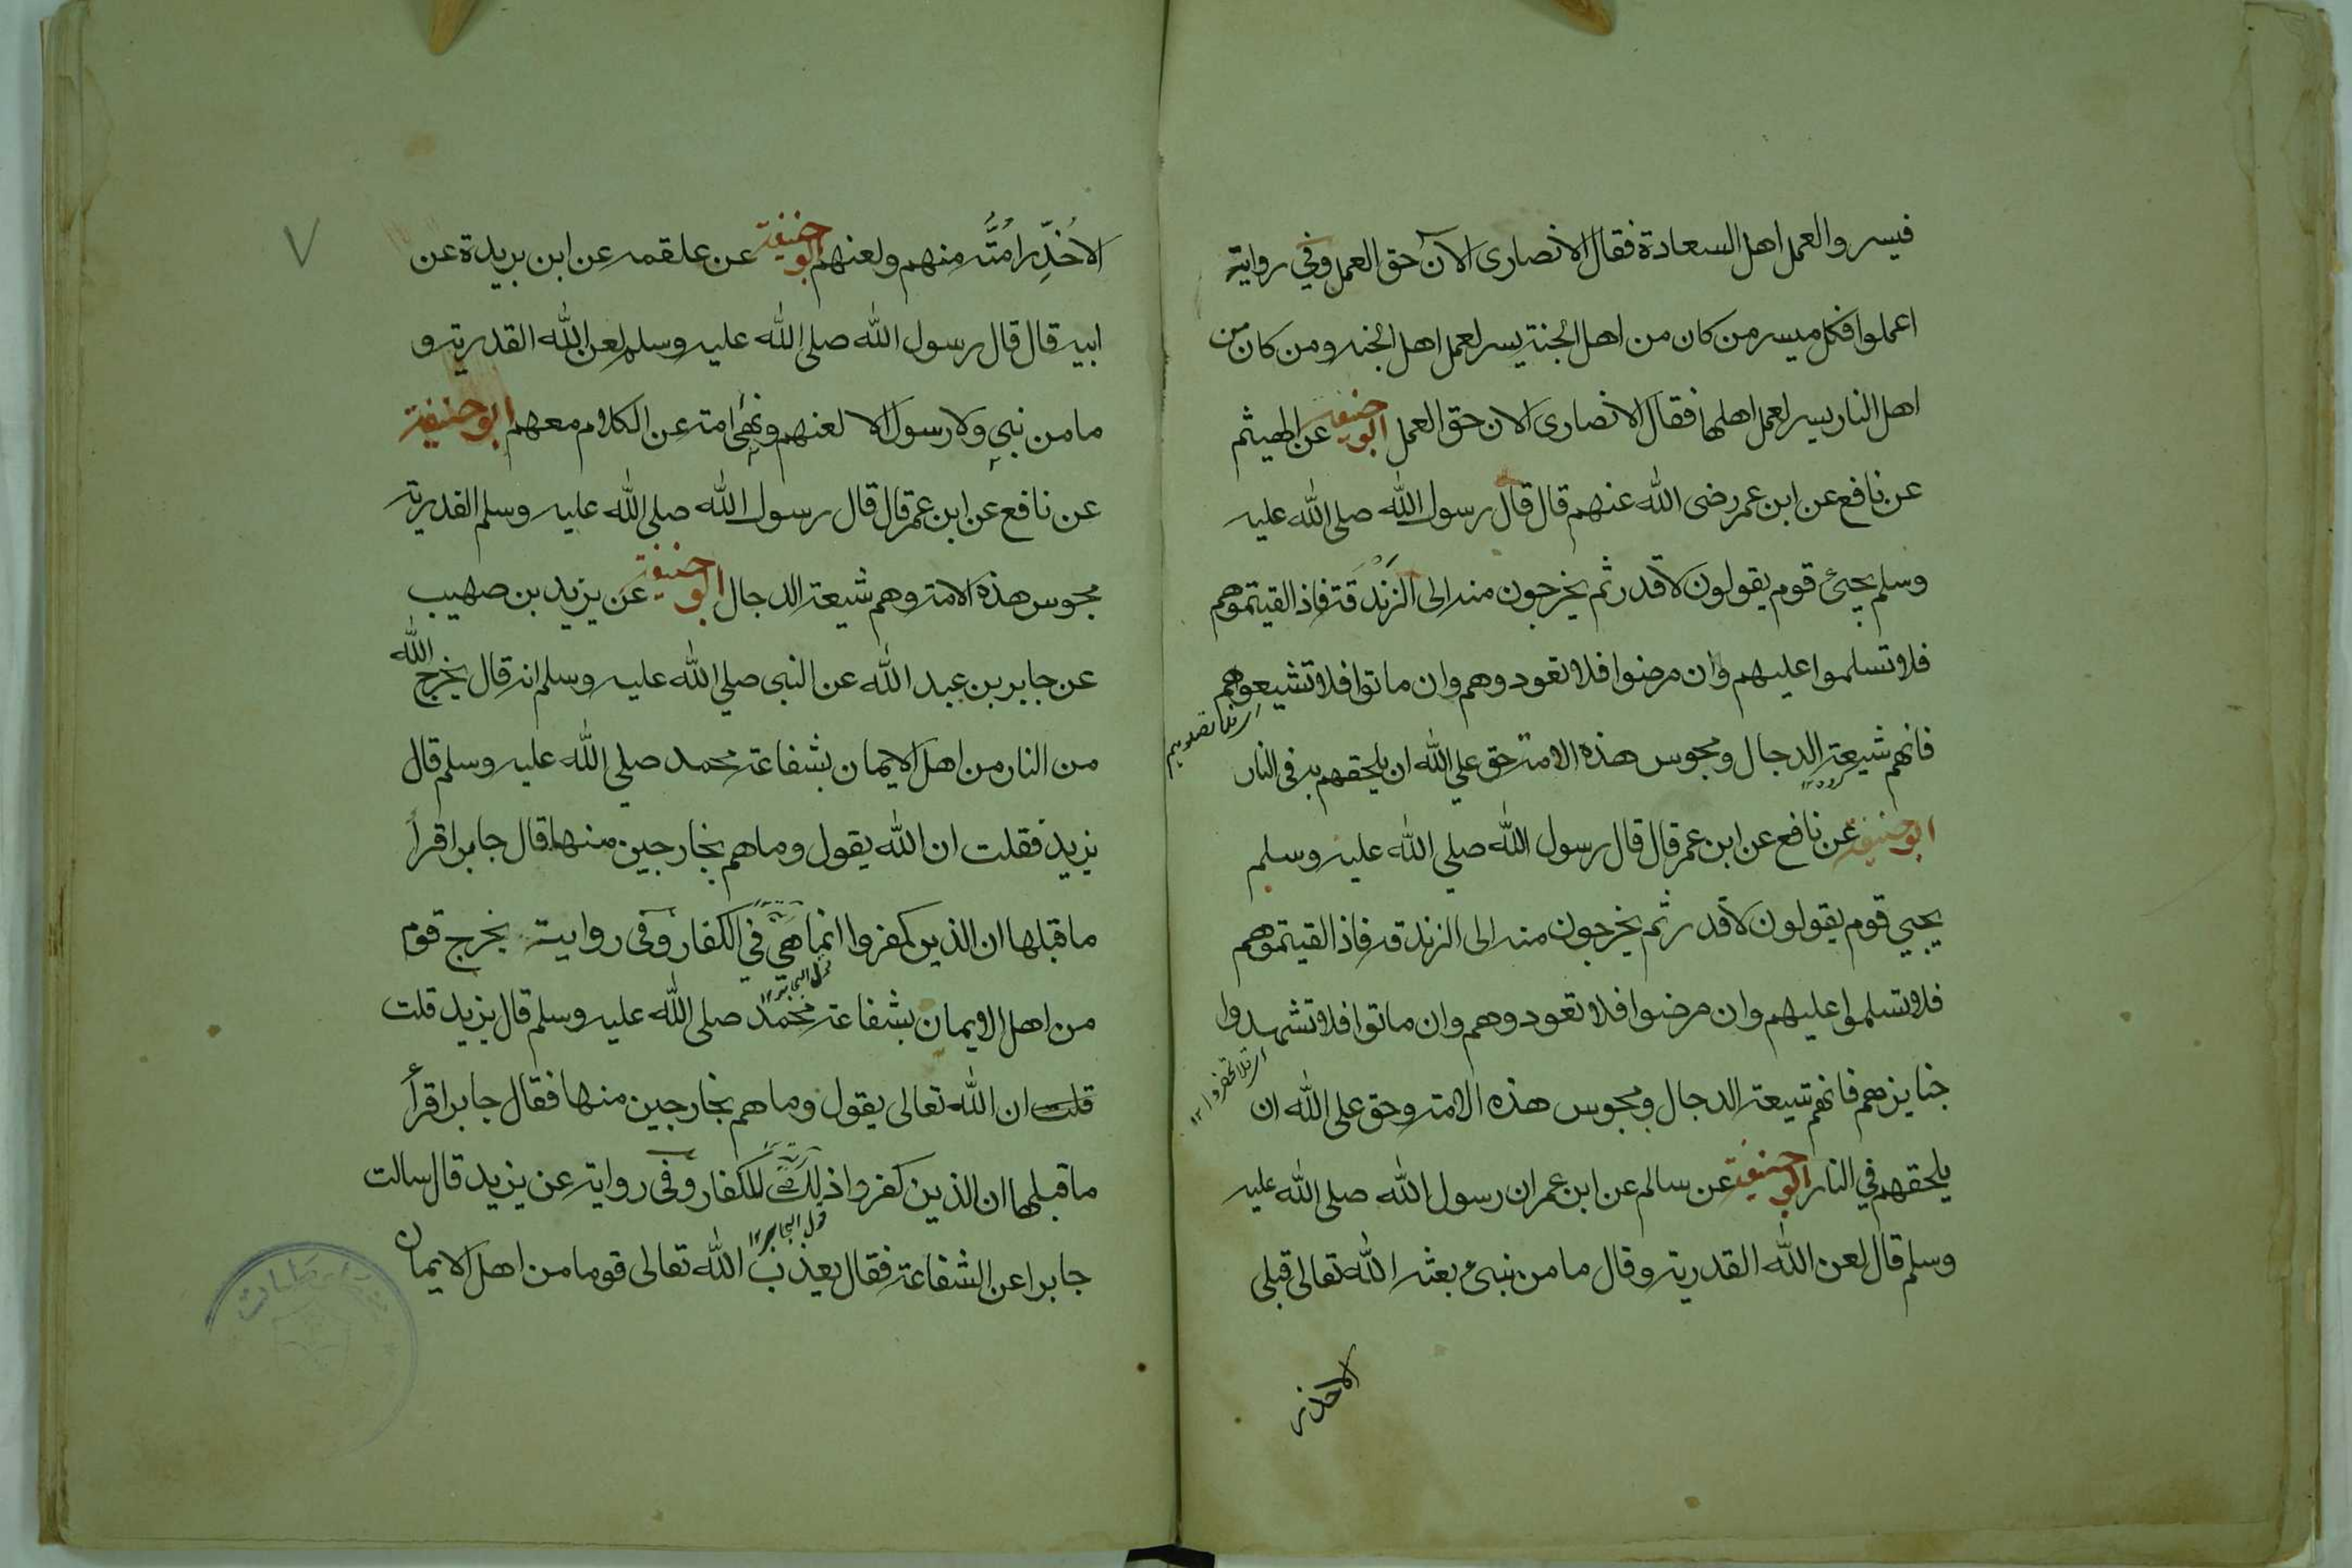 فيسروا لعمل اهل السعادة فقال الانصارى الآن حق العمل وفي رواية
اعملوا فكل ميسر من كان من اهل الجنة يسر لعمل اهل الجنه ومن كان من
اهل النار يسر لعمل اهلها فقال الانصارى الان حق العمل ابو حنيفه عن الهيثم
عن نافع عن ابن عمر رضى الله عنهم قال قال رسول الله صلى الله عليه
وسلم يجئ قوم يقولون لا قدر ثم يخرجون منه الى الزندقة فاذا لقيتموهم
فلا تسلموا عليهم وان مرضوا فلا تعودوهم وان ماتوا فلا تشيعوهم
فانهم شيعة الدجال ومجوس هذه الامة حق علي الله ان يلحقهم به في النار
ابو حنيفة عن نافع عن ابن عمر قال قال رسول الله صلي الله عليه وسلم
يجيي قوم يقولون لا قدر ثم يخرجون منه الى الزندقه فاذا لقيتموهم
فلا تسلموا عليهم وان مرضوا فلا تعودوهم وان ماتوا فلا تشهدوا
اى فلا تحضروا ١٢
جنايزهم فانهم شيعة الدجال ومجوس هذه الامة وحق على الله ان
يلحقهم في النار ابو حنيفة عن سالم عن ابن عمر ان رسول الله صلى الله عليه
وسلم قال لعن الله القدرية وقال ما من نبئ بعثه الله تعالى قبلى
الا حذر
٧
الا حُذِّر امته منهم ولعنهم ابو حنيفة عن علقمه عن ابن بريدة عن
ابيه قال قال رسول الله صلى الله عليه وسلم لعن الله القدرية و
ما من نبي ولا رسول الا لعنهم ونهى امته عن الكلام معهم ابو حنيفة
عن نافع عن ابن عمر قال قال رسول الله صلى الله عليه وسلم القدرية
مجوس هذه الامة وهم شيعة الدجال ابو حنيفة عن يزيد بن صهيب
عن جابر بن عبد الله عن النبى صلي الله عليه وسلم انه قال يخرج الله
من النار من اهل الايمان بشفاعة محمد صلي الله عليه وسلم قال
يزيد فقلت ان الله يقول وما هم بخارجين منها قال جابر اقرأ
ما قبلها ان الذين كفروا انما هي في الكفار وفى رواية يخرج قوم
من اهل الايمان بشفاعة محمد صلى الله عليه وسلم قال يزيد قلت
قلت ان الله تعالى يقول وما هم بخارجين منها فقال جابر اقرأ
ما قبلها ان الذين كفروا ذلك للكفار وفى رواية عن يزيد قال سالت
جابرا عن الشفاعة فقال يعذب الله تعالى قوما من اهل الايمان